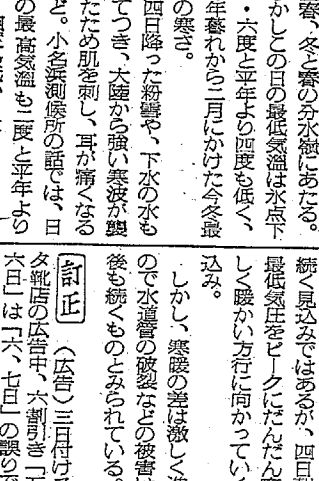 春、冬と春の分水嶺にあたる。
かしこの日の最低気温は氷点下
・六度と平年より四度も低く、
年暮れから二月にかけた今冬最
の寒さ。
四日降った粉雪や、下水の水も
てつき、大陸から強い寒波が襲
たため肌を刺し、耳が痛くなる
ど。小名浜測候所の話では、日
の最高気温も二度と平年より
続く見込みではあるが、四日
最低気圧をピークにだんだん
しく暖かい方行に向かってい
込み。
しかし、寒暖の差は激しく
ので水道管の破裂などの被害
後も続くものとみられている。
訂正 〈広告〉三日付け
タ靴店の広告中、六割引き「
六日」は「六、七日」の誤り